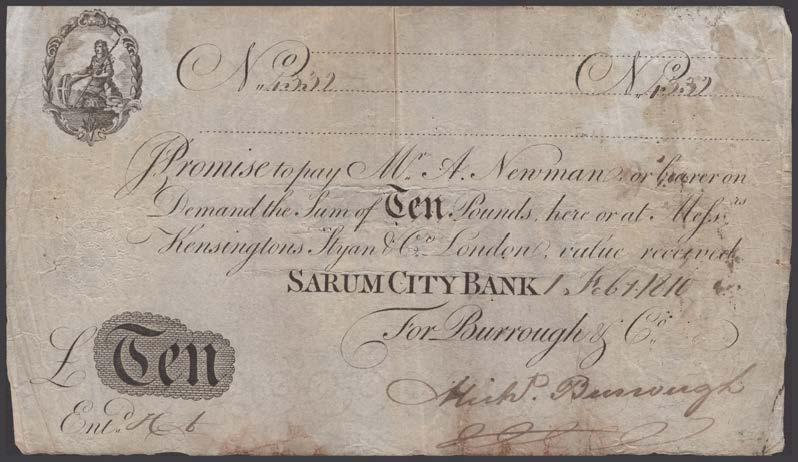 No 4332 No 4332
I Promise to pay Mr. A. Newman, or bearer on
Demand the Sum of Ten Pounds, here or at Messrs
Kensingtons Styan & Co. London, value received.
SARUM CITY BANK 1 Feby 1810
For Burrough & Co.
£ Ten
Michl. Burrough
Entd.